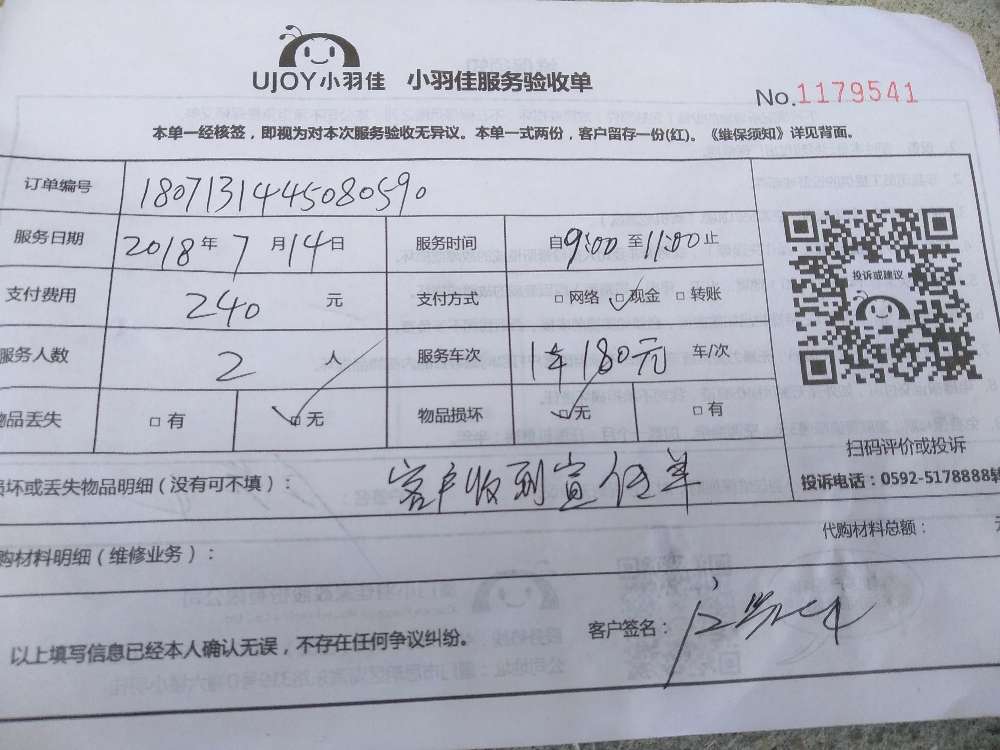 UJOY小羽佳 小羽佳服务验收单
No.1179541
本单一经核签，即视为对本次服务验收无异议。本单一式两份，客户留存一份(红)。《维保须知》详见背面。
订单编号 1807131445080590
服务日期 2018年7月14日 服务时间 自9:00至11:00止
支付费用 240元 支付方式 □网络 □现金 □转账
投诉或建议
服务人数 2人 服务车次 180元 车/次
物品丢失 □有 □无 物品损坏 □无 □有
扫码评价或投诉
损坏或丢失物品明细（没有可不填）： 客户收到宣任单
投诉电话：0592-5178888转
代购材料总额：
购材料明细（维修业务）：
客户签名：
以上填写信息已经本人确认无误，不存在任何争议纠纷。